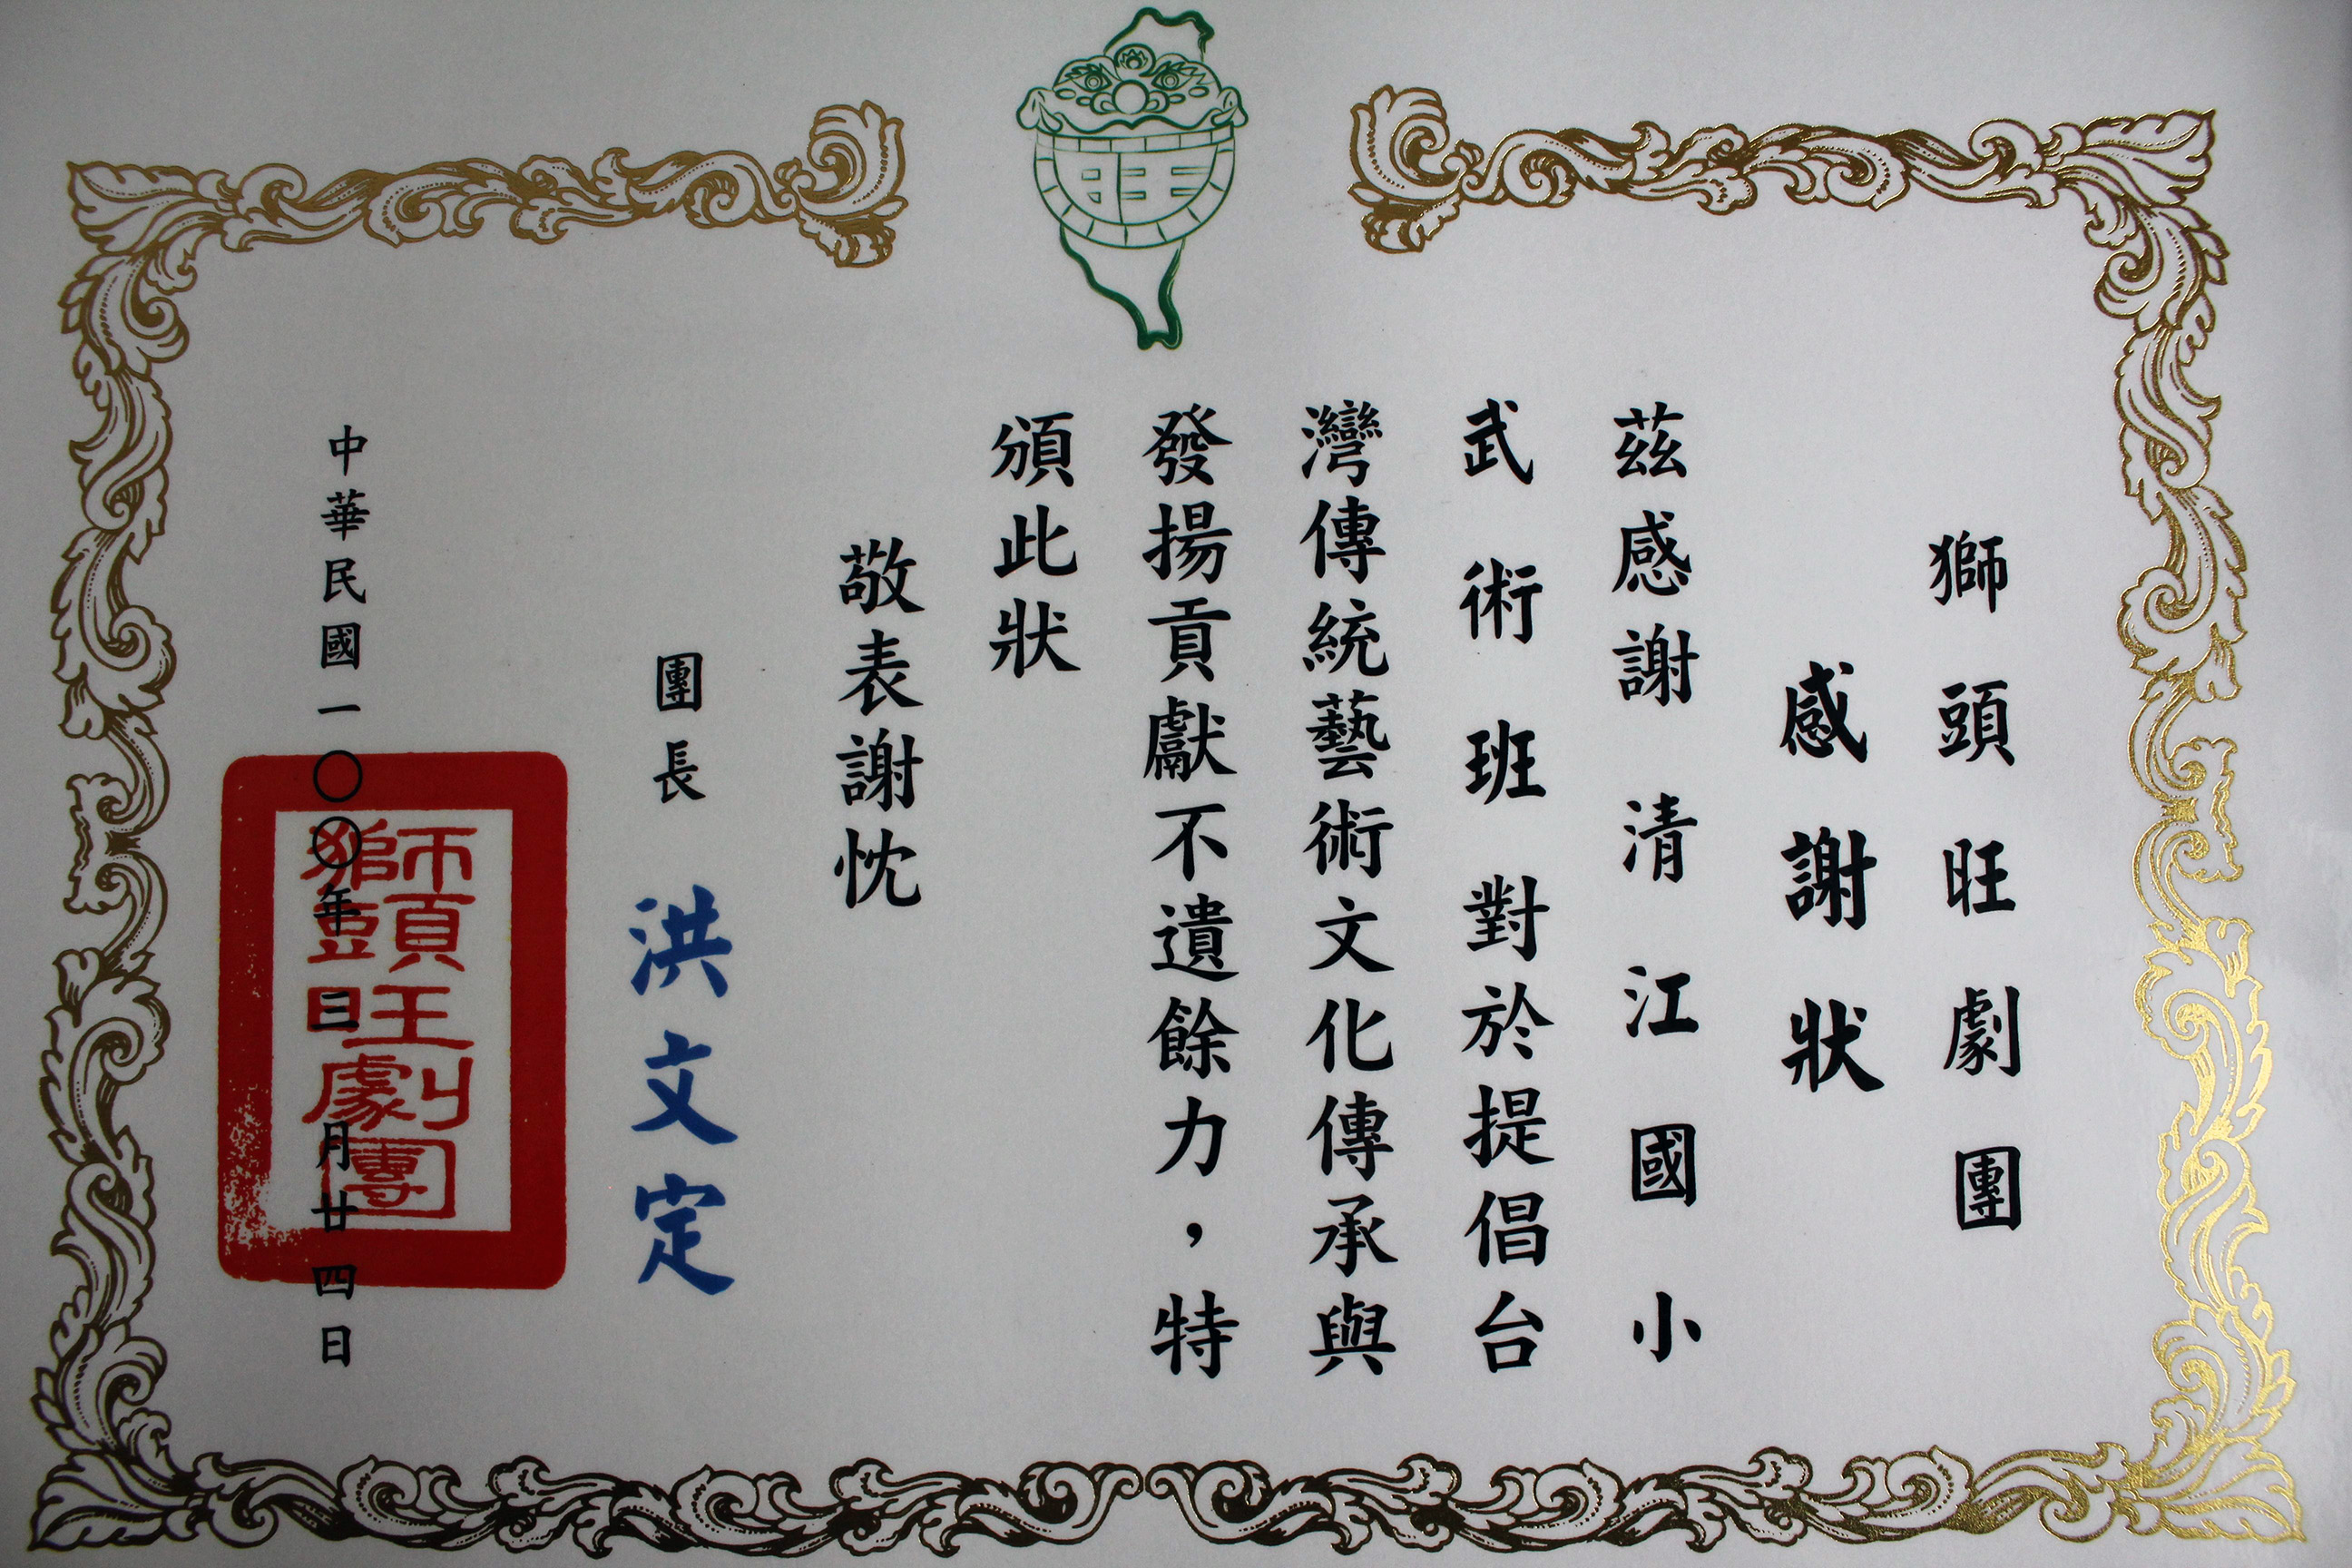 旺
獅頭旺劇團
感謝狀
茲感謝清江國小
武術班對於提倡台
灣傳統藝術文化傳承與
發揚貢獻不遺餘力，特
頒此狀
敬表謝忱
團長 洪文定
獅頭旺劇團
中華民國一〇〇年三月廿四日